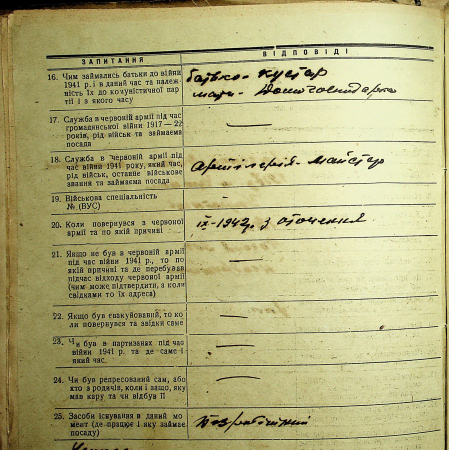 ЗАПИТАННЯ
ВІДПОВІДІ
16. Чим займались батьки до війни
1941 р. і в даний час та належ-
ність їх до комуністичної пар-
тії і з якого часу
батько - кустар
мати - Домогосподарка
17. Служба в червоній армії під час
громадянської війни 1917 — 22
років, рід військ та займаєма
посада
—
18. Служба в червоній армії під
час війни 1941 року, який час,
рід військ, останнє військове
звання та займаєма посада
Артілерія - майстер
19. Військова спеціальність
№ (ВУС)
-
20. Коли повернувся з червоної
армії та по якій причині
IX-1942 р. з оточення
21. Якщо не був в червоній армії
під час війни 1941 р., то по
якій причині та де перебував
підчас відходу червоної армії
(чим може підтвердити, з коли
свідками то їх адреса)
—
22. Якщо був евакуйований, то ко
ли повернувся та звідки саме
—
23. Чи був в партизанах під час
війни 1941 р. та де саме і
який час.
—
24. Чи був репресований сам, або
хто з родичів, коли і защо, яку
мав кару та чи відбув її
—
25. Засоби існування в даний мо
мент (де працює і яку займає
посаду)